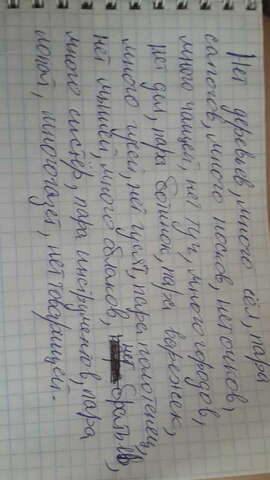 Нет деревьев, много сёл, пара
сапогов, много носков, нет очков,
много чащей, нет туч, много городов,
нет, пара ботинок, пара варежек,
много, нет, пара полотенец,
нет мышей, много облаков, нет братьев,
много сестёр, пара инструментов, пара
много газет, нет товарищей.